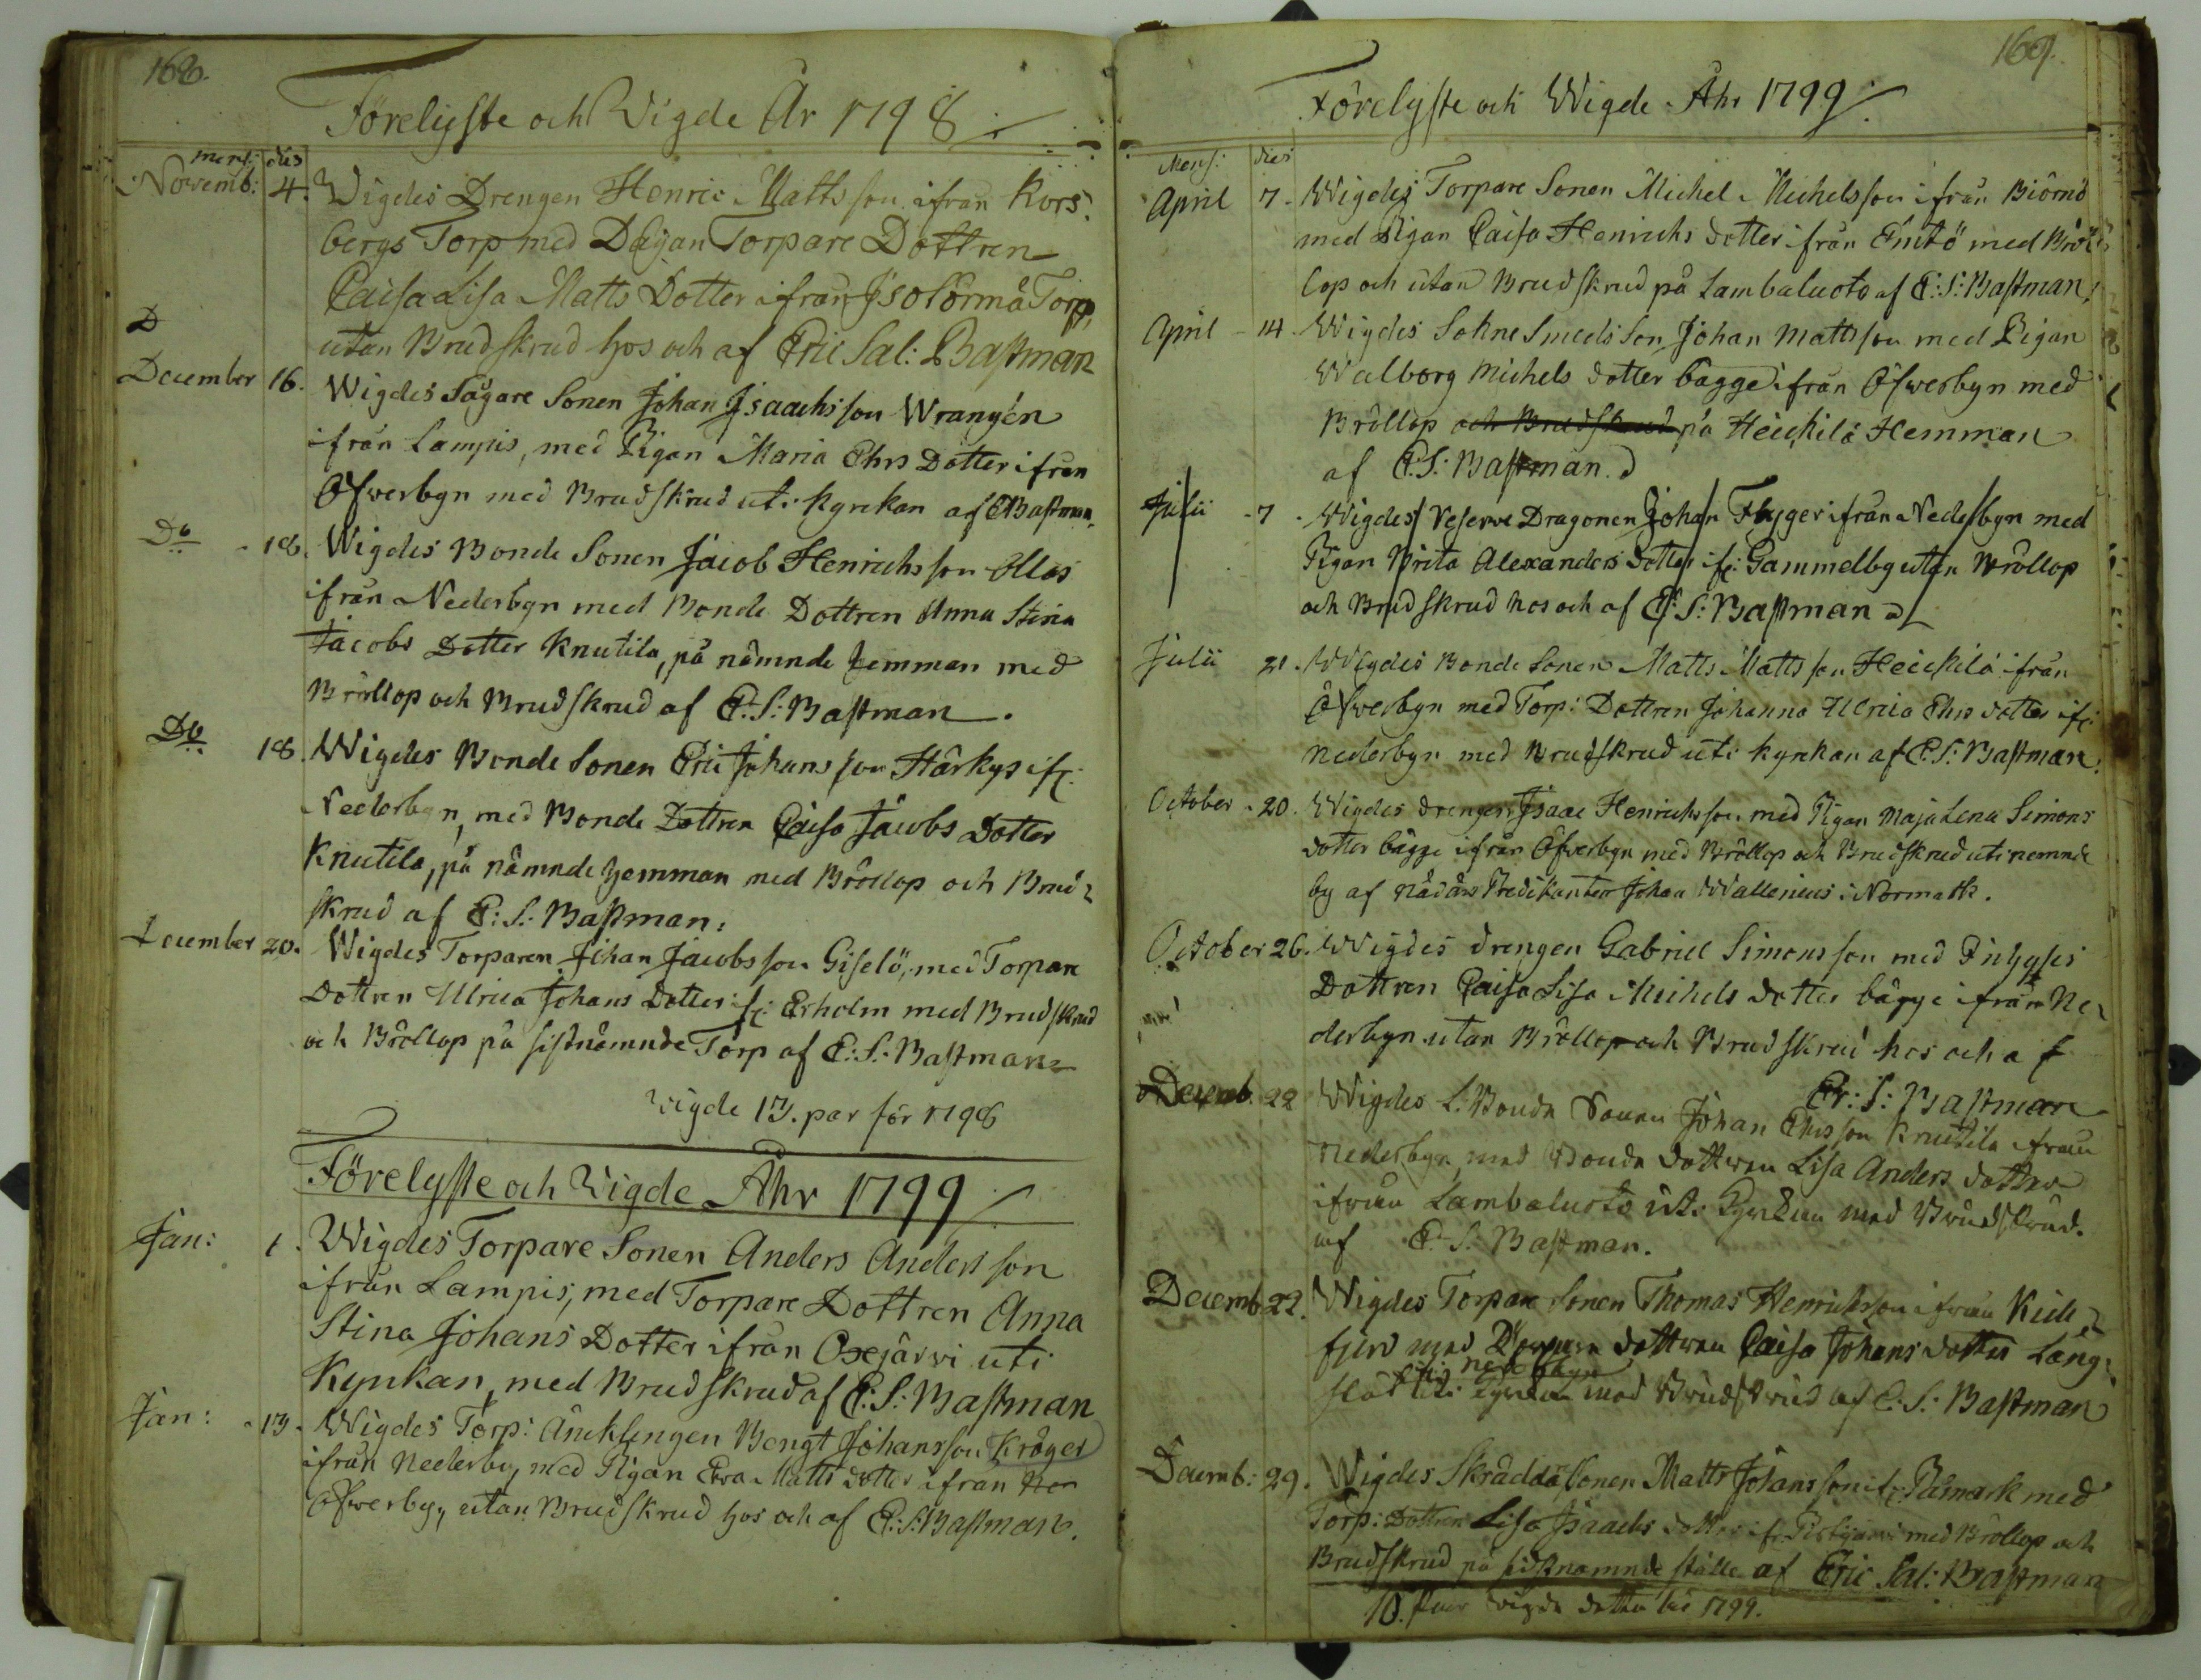 168.
Föreliyste och Wigde År 1798
mens: dies
Novemb: 4. Wigdes Drengen Henric Mattsson ifrån Kors-
bergs Torp med Torpare Dottren
Caisa Lisa Matts Dotter ifrån Isosormå Torp,
D utan Brudskrud hos och af Eric Sal: Bastman
December 16. Wigdes Sågare Sonen Johan Isaachsson Wrangén
ifrån Lampis, med Pigan Maria Ehrs Dotter ifrån
Öfwerbyn med Brudskrud uti Kyrckan af E Bastman.
Do 18. Wigdes Bonde Sonen Jacob Henrichsson Ollas
ifrån Nederbyn med Bonde Dottren Anna Stina
Jacobs Dotter Knutila, på nämnde Hemman med
Bröllop och Brudskrud af E: S: Bastman.
Do 18. Wigdes Bonde Sonen Eric Johansson Härkys ifr:
Nederbyn, med Bonde Dottren Caisa Jacobs Dotter
Knutila, på nämnde Hemman med Bröllop och Brud-
skrud af E: S: Bastman.
December 20. Wigdes Torparen Johan Jacobsson Giselö, med Torpare
Dottren Ulrica Johans Dotter ifr: Erholm med Brudskrud
och Bröllop på sistnämnde Torp af E: S: Bastman
wigde 13. par för 1798
Förelyste och Wigde Åhr 1799
Jan: 1. Wigdes Torpare Sonen Anders Andersson
ifrån Lampis, med Torpare Dottren Anna
Stina Johans Dotter ifrån Oxejärvi uti
Kyrkan, med Brudskrud af E: S: Bastman
Jan: 13. Wigdes Torp: Änklingen Bengt Johansson Kröger
ifrån Nederby, med Pigan Ewa Matts dotter ifrån
Öfwerby, utan Brudskrud hos och af E: S: Bastman.
169.
Förelyste och Wigde Åhr 1799
Mens: dies
April 7. Wigdes Torpare Sonen Michel Michelsson ifrån Biörnö
med Pigan Caisa Henrichs dotter ifrån Emtö med Bröl-
lop och utan Brudskrud på Lambaluoto af E: S: Bastman.
April 14 Wigdes Sokne Smeds Son Johan Mattsson med Pigan
Walborg Michels dotter bägge ifrån Öfwerbyn med
Bröllop och Brudskrud på Heickilä Hemman
af E: S: Bastman.
Julii 7. Wigdes Reserve Dragonen Johan Flyger ifrån Nederbyn med
Pigan Brita Alexanders Dotter ifr: Gammelby utan Bröllop
och Brudskrud hos och af E: S: Bastman
Julii 21. Wigdes Bonde Sonen Matts Mattsson Heickilä ifrån
Öfwerbyn med Torp: Dottren Johanna Ulrica Ehrs dotter ifr:
Nederbyn med Brudskrud uti Kyrkan af E: S: Bastman.
October 20. Wigdes drengen Isaac Henrichsson med Pigan Maja Lena Simons
dotter bägge ifrån Öfwerbyn med Bröllop och Brudskrud uti nemnde
by af Nådårs Predikanten Johan Wallenius i Normark.
October 26. Wigdes drengen Gabriel Simonsson med Inhyses
Dottren Caisa Lisa Michels dotter bägge ifrån Ne-
derbyn utan Bröllop och Brudskrud hos och af
Er: S: Bastman
Decemb. 22 Wigdes L: Bonde Sonen Johan Ehrsson Knutila ifrån
Nederbyn, med Bonde dottren Lisa Anders dotter
ifrån Lambaluoto uti Kyrkan med Brudskrud.
af E: S: Bastman.
Decemb 22. Wigdes Torpare Sonen Thomas Henrichsson ifrån Kiile
fierd med Torpare dottren Caisa Johans dotter Lång-
slät
uti Kyrkan med Brudskrud af E: S: Bastman
Decemb: 29. Wigdes Skräddare Sonen Matts Johansson ifr: Påmark med
Torp: Dottren Lisa Isaachs dotter ifr: med Bröllop och
Brudskrud på sidstnämnde ställe af Eric Sal: Bastman
10. Par wigde detta år 1799.